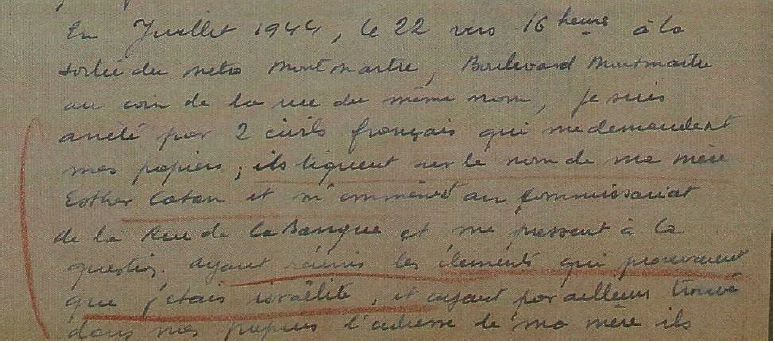 En Juillet 1944, le 22 vers 16 heures à la
sortie du metro Montmartre, Boulevard Montmartre
au coin de la rue du même nom, je suis
arrêté par 2 civils français qui me demandent
mes papiers, ils tiquent sur le nom de ma mère
Esther et m'emmènent au Commissariat
de la Rue de la Banque et me passent à la
question. Ayant réunis les éléments qui prouvaient
que j'étais israëlite, et ayant par ailleurs trouvé
dans mes papiers l'adresse de ma mère ils